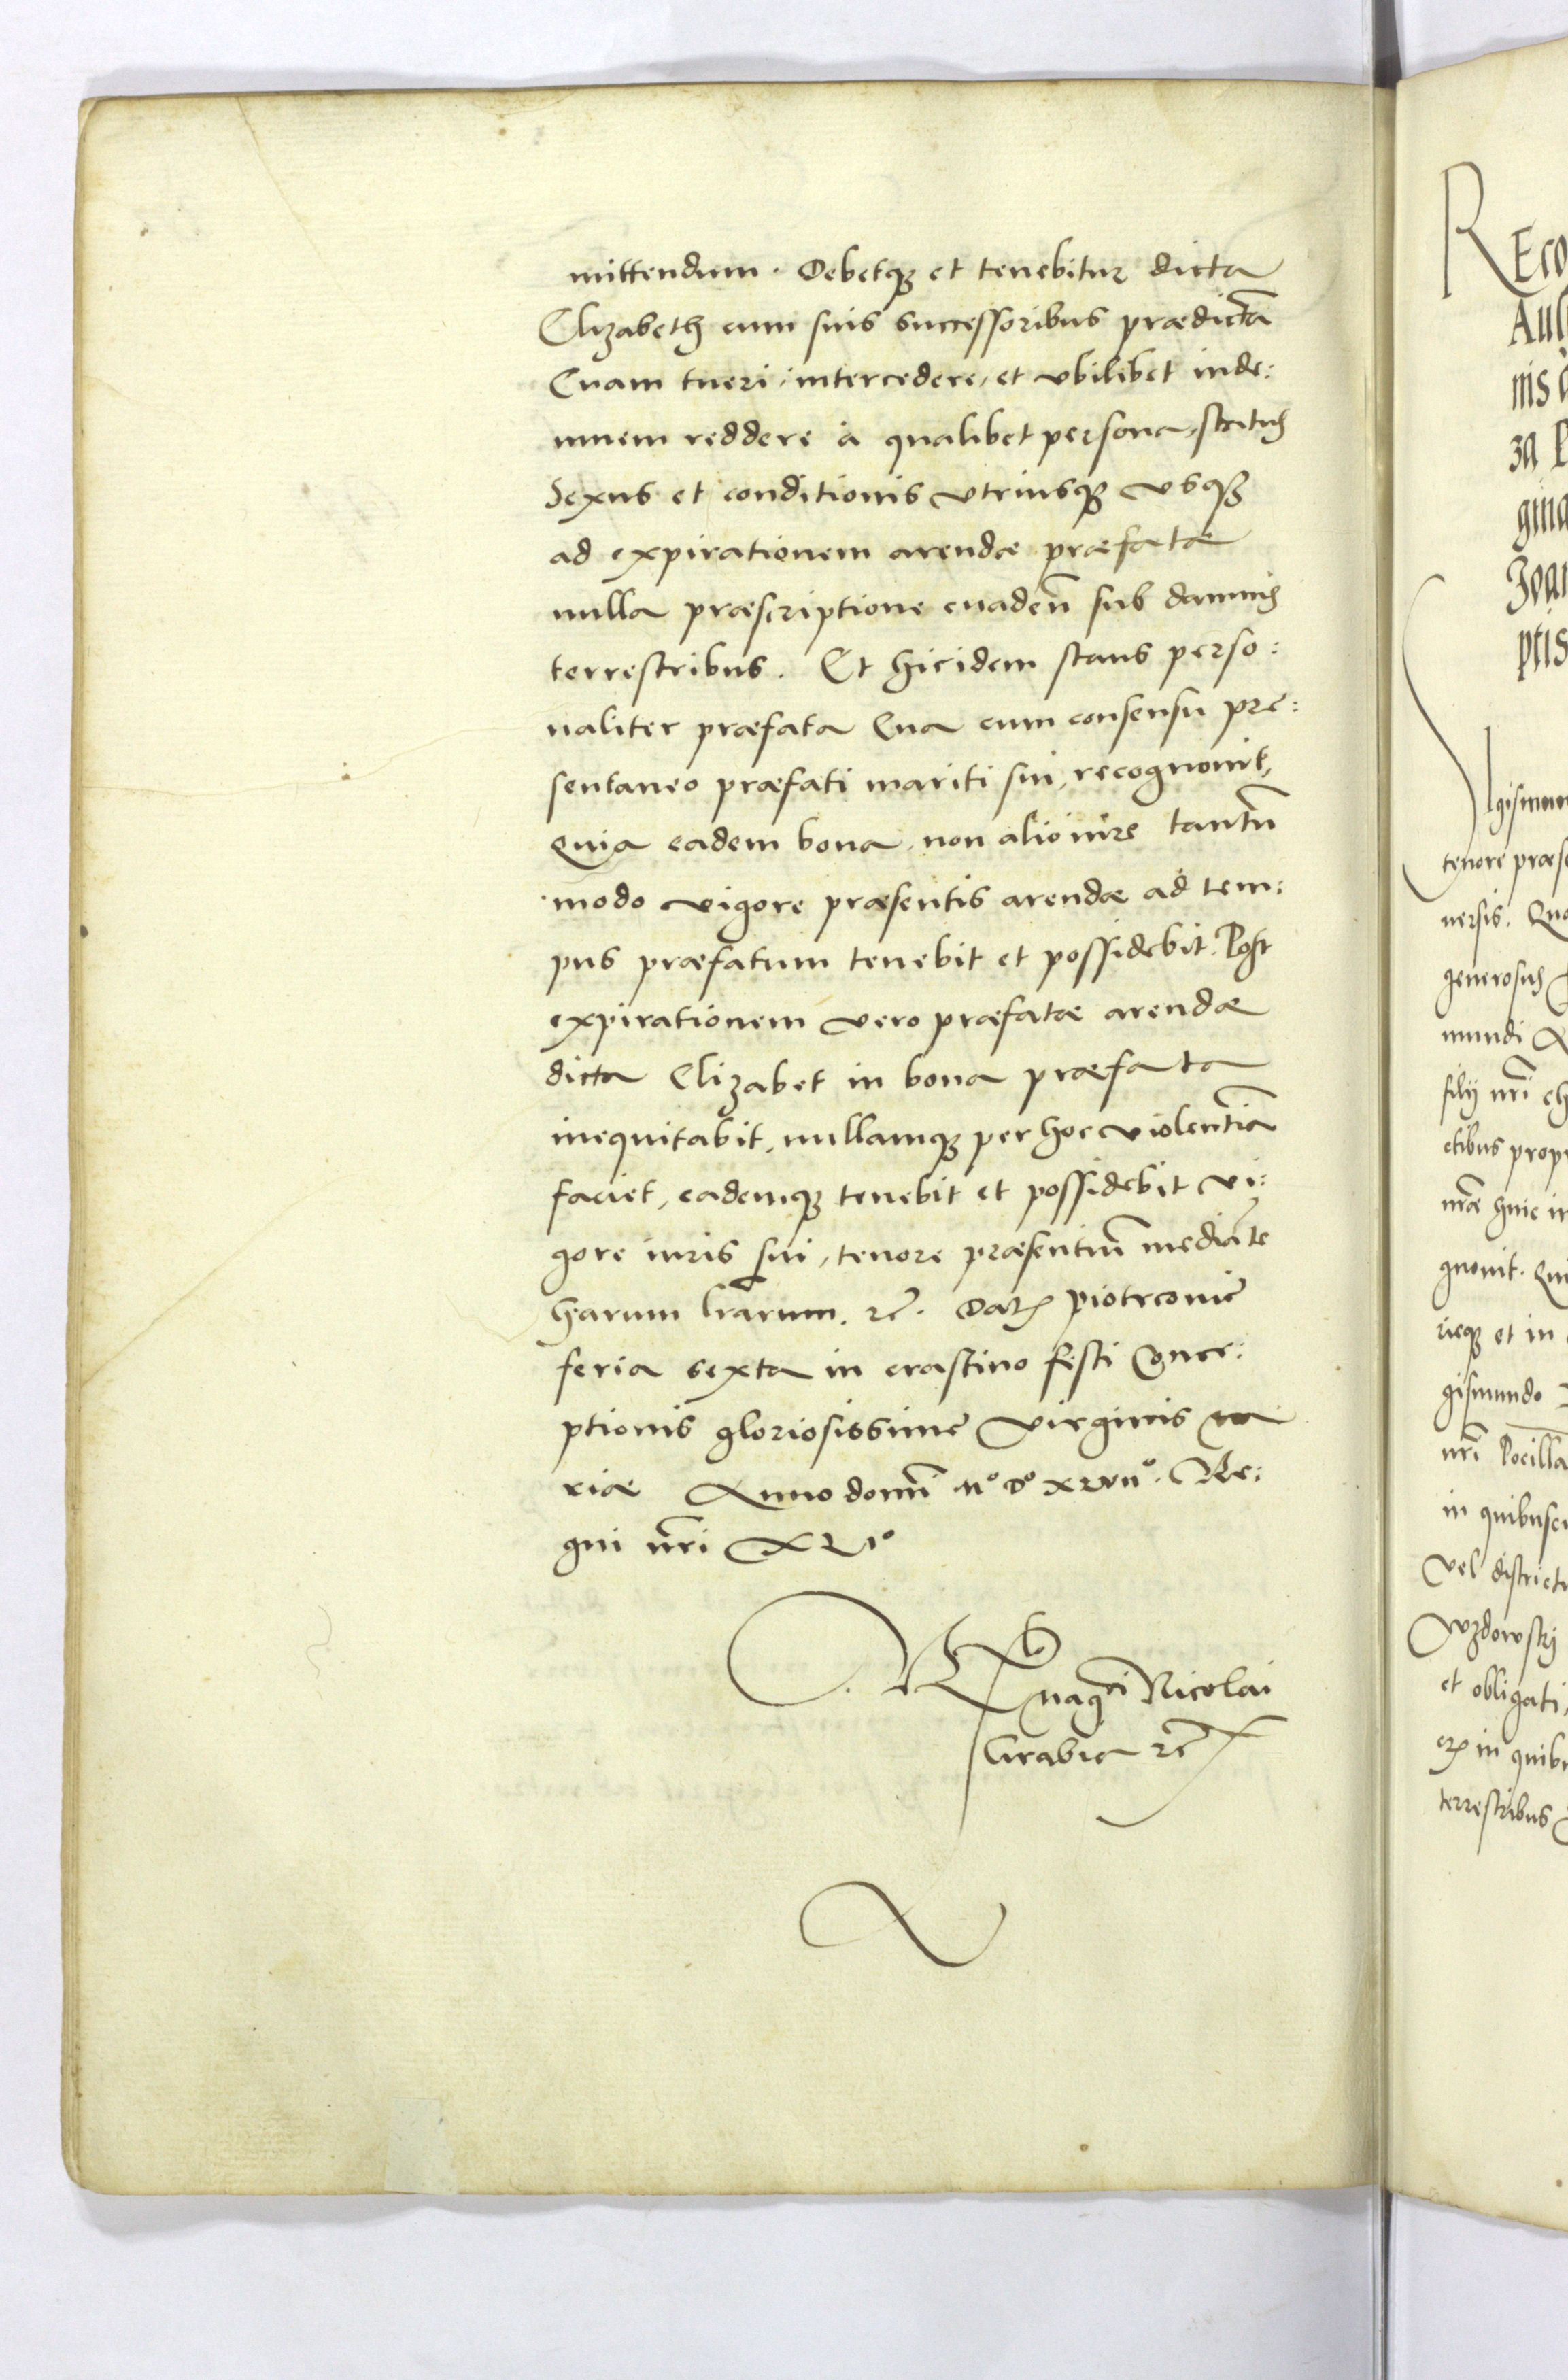 mittendum. Debetqȝ et tenebitur dicta
Elizabeth cum suis successoribus prædictā
Evam tueri, intercedere, et vbilibet inde:
mnem reddere a qualibet persona, status
Sexus et conditionis vtriusqȝ vsqȝ
ad expirationem arendæ præfatæ
nulla præscriptione evadeñ sub damnis
terrestribus. Et hicidem stans perso:
naliter præfata Eva cum consensu pre:
sentaneo præfati mariti sui, recognovit,
Quia eadem bona, non alio iure tantū
modo vigore præsentis arendæ ad tem:
pus præfatum tenebit et possidebit. Post
expirationem vero præfatæ arendæ
dicta Elizabet in bona præfata
inequitabit, nullamqȝ per hoc violentiā
faciet, eademqȝ tenebit et possidebit vi:
gore iuris sui, tenore præsentiū mediāte
harum lrārum. ꝛc̄. Datꝫ piotrconię
feria sexta in crastino festi Conce:
ptionis gloriosissimę virginis ma
riæ Anno domī Mº Dº XLVIIº. Re:
gni nr̄i XLIº
Magci Nicolai
Grabia ꝛc̄
Reco
nis
za
gina
Joan
ptis
gismun
tenore præs
versis. Quo
generosus
mundi
filÿ nr̄i
ctibus prop
nr̄æ huic
gnovit. Qui
ricqȝ et in
gismundo
nr̄i Pocilla
in quibusc
vel district
Wzdowskÿ
et obligati,
in quib
terrestribus